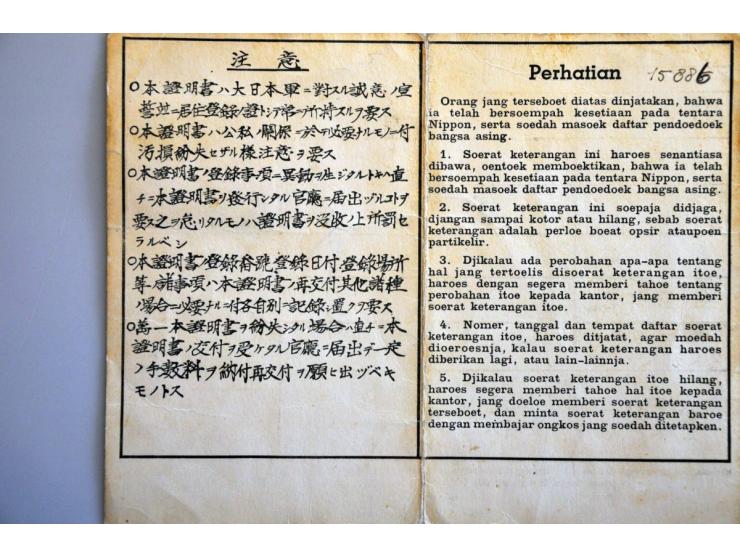 注意
○本證明書ハ大日本軍ニ對スル誠意ノ宣
誓竝ニ居住登錄ノ證トシテ常ニ所持スルヲ要ス
○本證明書ハ公私ノ關係ニ於テ必要ナルモノニ付
汚損紛失セザル樣注意ヲ要ス
○本證明書ノ登錄事項ニ異動ヲ生ジタルトキハ直
チニ本證明書ヲ發行シタル官廳ニ届出ヅルコトヲ
要ス之ヲ怠リタルモノハ證明書ヲ沒收ノ上所罰セ
ラルベシ
○本證明書ノ登錄番號登錄日付登錄場所
等ノ諸事項ハ本證明書ノ再交付其他諸種
ノ場合ニ必要ナルニ付各自別ニ記錄シ置クヲ要ス
○萬一本證明書ヲ紛失シタル場合ハ直チニ本
證明書ノ交付ヲ受ケタル官廳ニ届出デ一定
ノ手數料ヲ納付再交付ヲ願ヒ出ヅベキ
モノトス
Perhatian 15886
Orang jang terseboet diatas dinjatakan, bahwa
ia telah bersoempah kesetiaan pada tentara
Nippon, serta soedah masoek daftar pendoedoek
bangsa asing.
1. Soerat keterangan ini haroes senantiasa
dibawa, oentoek memboektikan, bahwa ia telah
bersoempah kesetiaan pada tentara Nippon, serta
soedah masoek daftar pendoedoek bangsa asing.
2. Soerat keterangan ini soepaja didjaga,
djangan sampai kotor atau hilang, sebab soerat
keterangan adalah perloe boeat opsir ataupoen
partikelir.
3. Djikalau ada perobahan apa-apa tentang
hal jang tertoelis disoerat keterangan itoe,
haroes dengan segera memberi tahoe tentang
perobahan itoe kepada kantor, jang memberi
soerat keterangan itoe.
4. Nomer, tanggal dan tempat daftar soerat
keterangan itoe, haroes ditjatat, agar moedah
dioeroesnja, kalau soerat keterangan haroes
diberikan lagi, atau lain-lainnja.
5. Djikalau soerat keterangan itoe hilang,
haroes segera memberi tahoe hal itoe kepada
kantor, jang doeloe memberi soerat keterangan
terseboet, dan minta soerat keterangan baroe
dengan membajar ongkos jang soedah ditetapken.